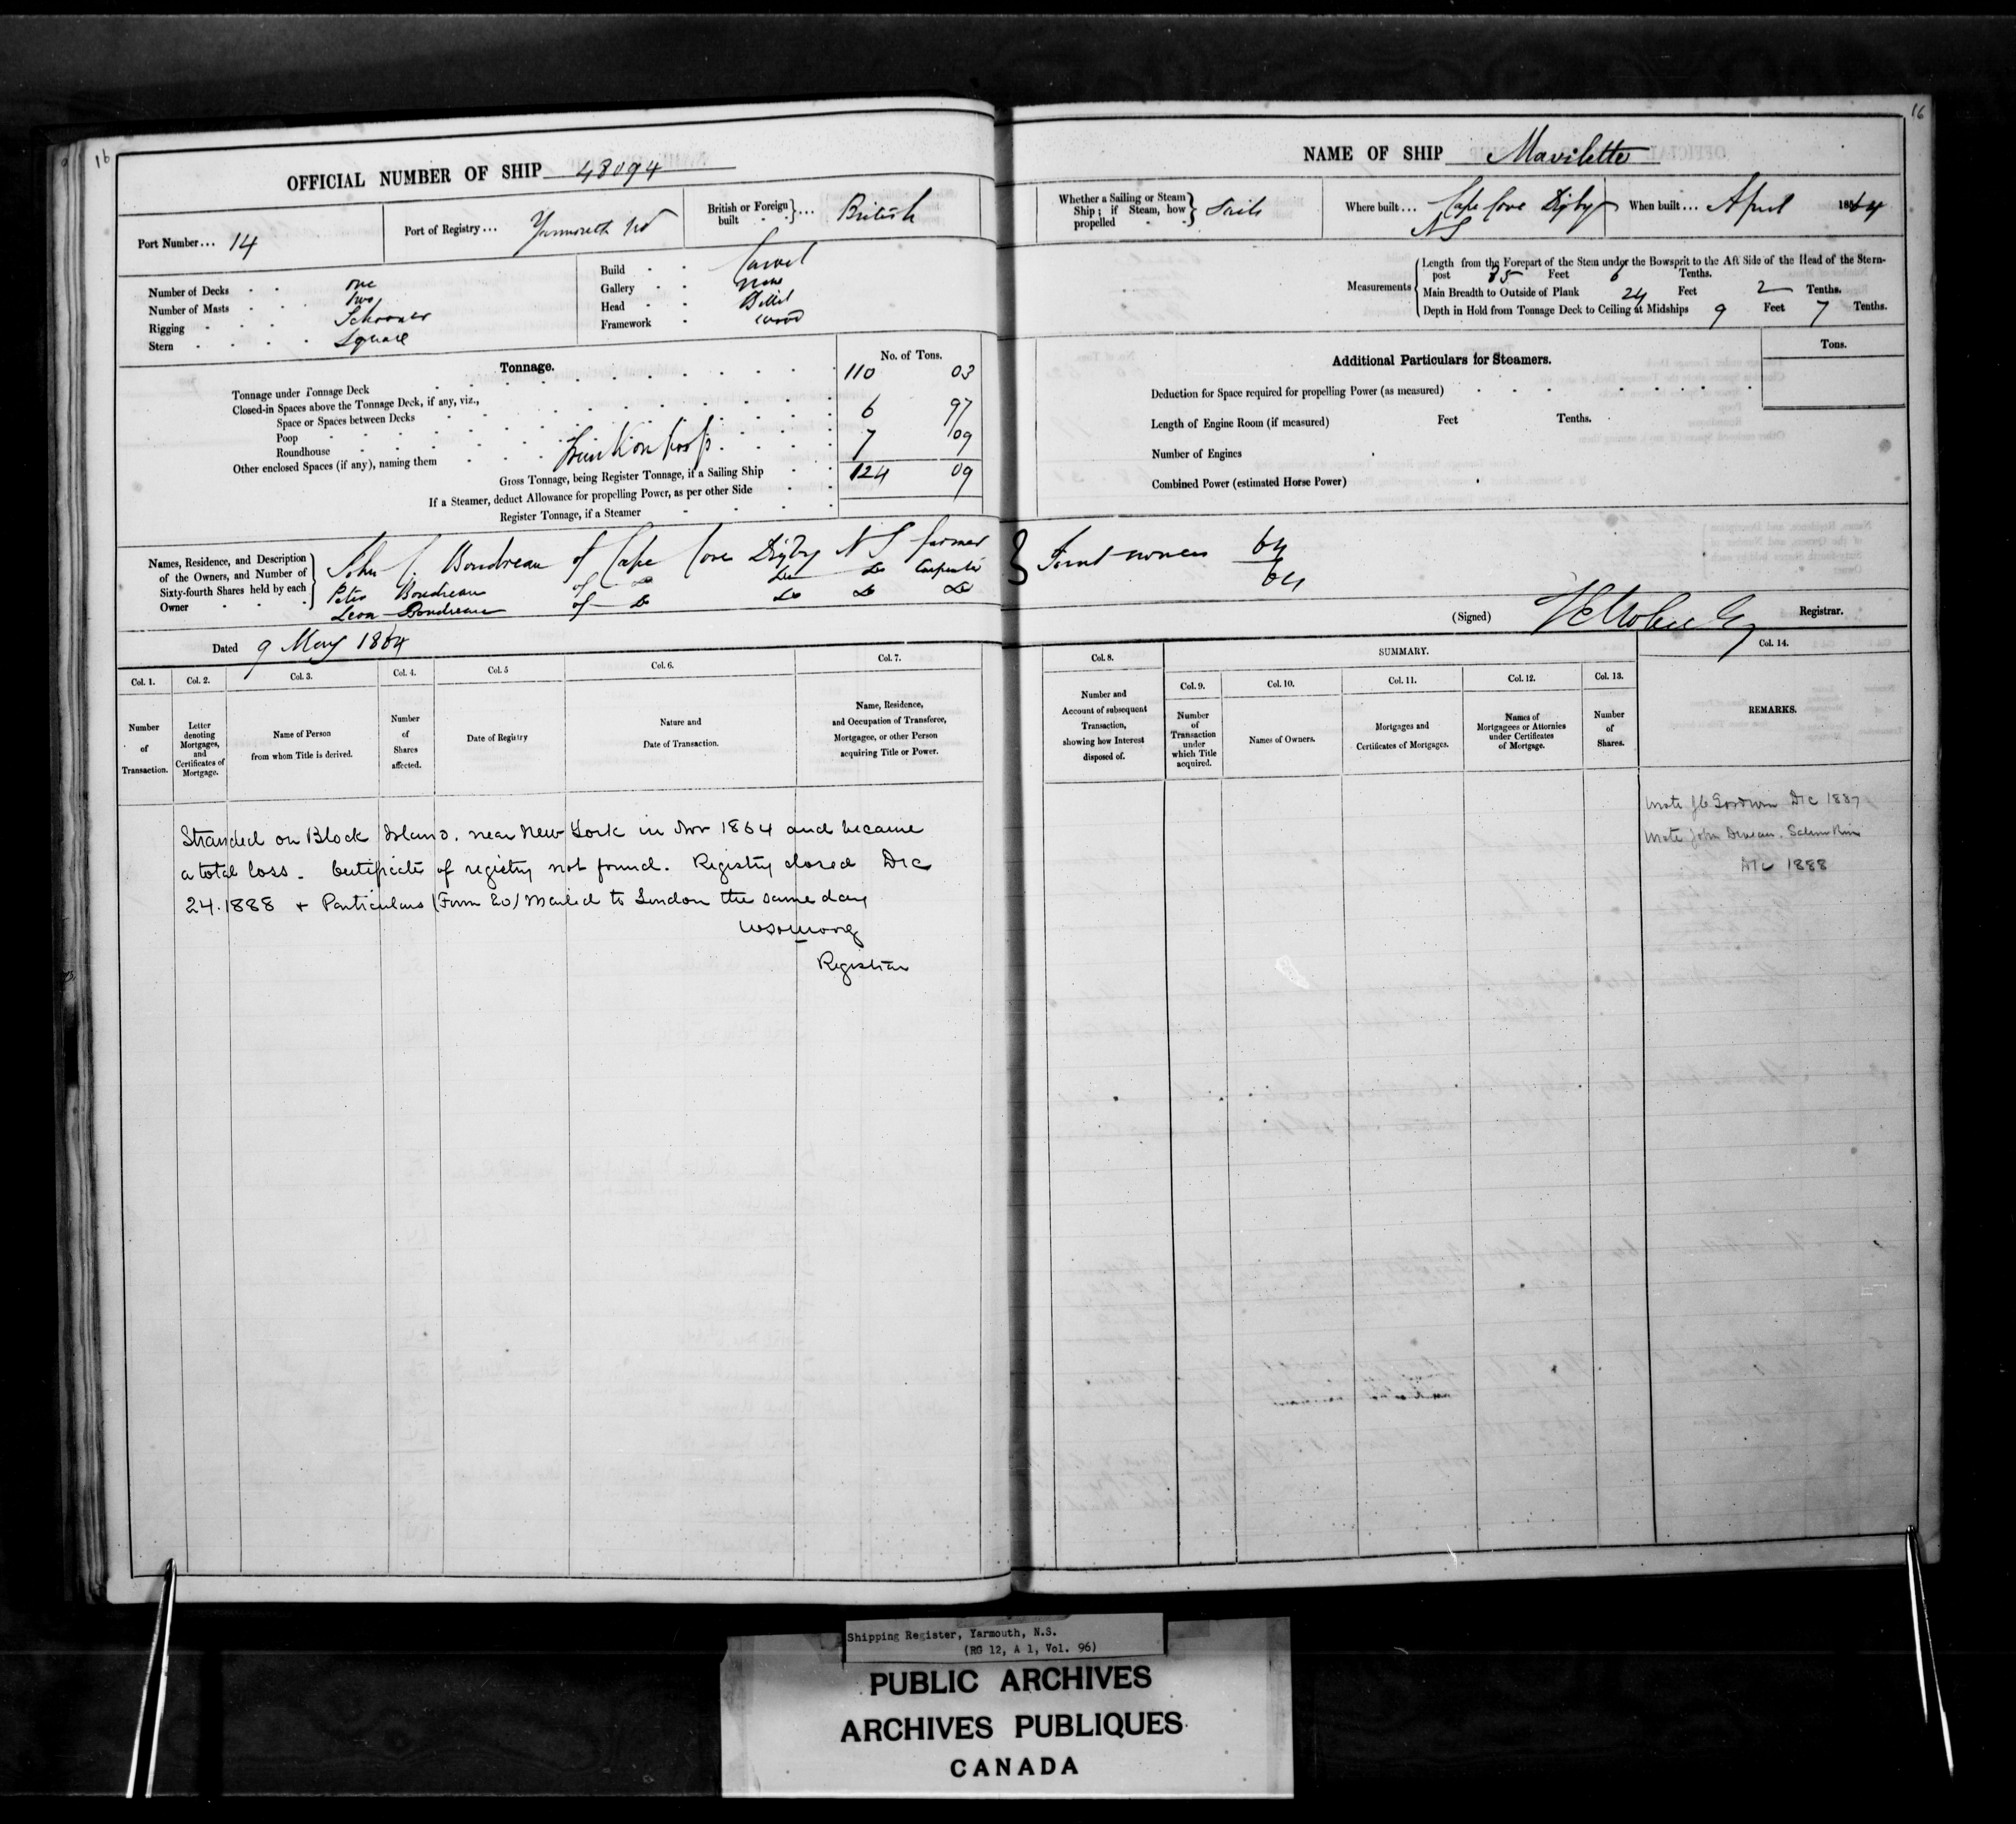 16
OFFICIAL NUMBER OF SHIP 48094
Port Number... 14
Port of Registry... Yarmouth NS
British or Foreign built } ... British
Number of Decks one
Number of Masts two
Rigging Schooner
Stern Square
Build Carvel
Gallery none
Head Billet
Framework wood
Tonnage.
No. of Tons.
Tonnage under Tonnage Deck 110 03
Closed-in Spaces above the Tonnage Deck, if any, viz.,
Space or Spaces between Decks 6 97
Poop
Roundhouse
Other enclosed Spaces (if any), naming them 7 09
Gross Tonnage, being Register Tonnage, if a Sailing Ship 124 09
If a Steamer, deduct Allowance for propelling Power, as per other Side
Register Tonnage, if a Steamer
Names, Residence, and Description of the Owners, and Number of Sixty-fourth Shares held by each Owner
John Boudreau of Cape Cove Digby N S farmer
Peter Boudreau of Do Do Do Carpenter
Leon Boudreau of Do Do Do Do
Dated 9 May 1864
Col. 1. Col. 2. Col. 3. Col. 4. Col. 5 Col. 6. Col. 7.
Number of Transaction.
Letter denoting Mortgages, and Certificates of Mortgage.
Name of Person from whom Title is derived.
Number of Shares affected.
Date of Registry
Nature and Date of Transaction.
Name, Residence, and Occupation of Transferee, Mortgagee, or other Person acquiring Title or Power.
Stranded on Block Island. near New York in Nov 1864 and became
a total loss. Certificate of registry not found. Registry closed Dec
24. 1888 + Particulars (Form 20) Mailed to London the same day
Registrar
16
NAME OF SHIP Mavilette
Whether a Sailing or Steam Ship; if Steam, how propelled } Sails
Where built... Cape Cove Digby NS
When built... April 1864
Measurements
Length from the Forepart of the Stem under the Bowsprit to the Aft Side of the Head of the Stern-
post 85 Feet 6 Tenths.
Main Breadth to Outside of Plank 24 Feet 2 Tenths.
Depth in Hold from Tonnage Deck to Ceiling at Midships 9 Feet 7 Tenths.
Additional Particulars for Steamers.
Tons.
Deduction for Space required for propelling Power (as measured)
Length of Engine Room (if measured) Feet Tenths.
Number of Engines
Combined Power (estimated Horse Power)
} Joint owners 64
64
(Signed) Registrar.
Col. 8. SUMMARY. Col. 14.
Col. 9. Col. 10. Col. 11. Col. 12. Col. 13.
Number and Account of subsequent Transaction, showing how Interest disposed of.
Number of Transaction under which Title acquired.
Names of Owners.
Mortgages and Certificates of Mortgages.
Names of Mortgagees or Attornies under Certificates of Mortgage.
Number of Shares.
REMARKS.
wrote J C Goodwin Dec 1887
wrote John Deveau. Salmon River
Dec 1888
Shipping Register, Yarmouth, N.S.
(RG 12, A 1, Vol. 96)
PUBLIC ARCHIVES
ARCHIVES PUBLIQUES
CANADA